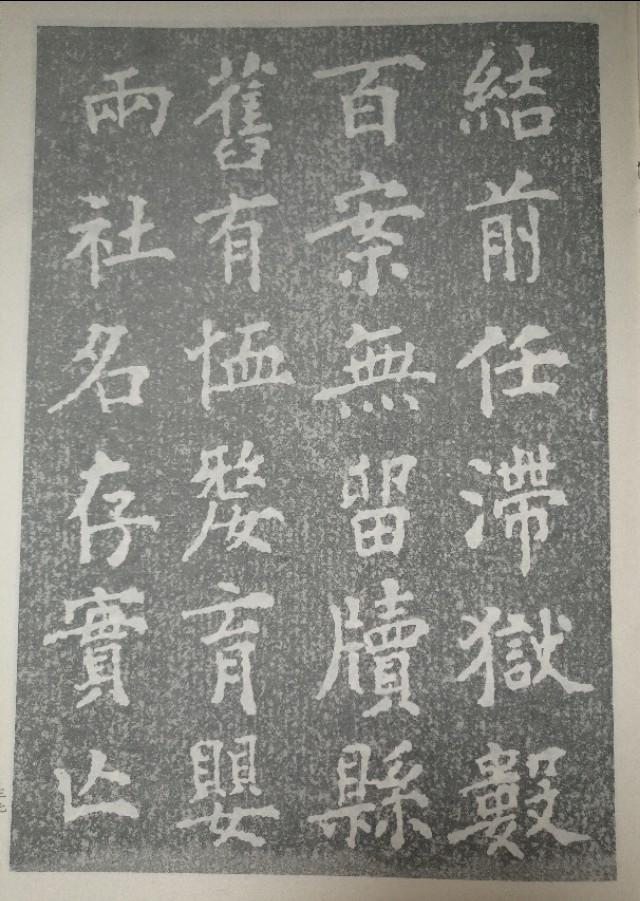 結前任滯獄數
百案無留牘縣
舊有恤嫠育嬰
兩社名存實亾